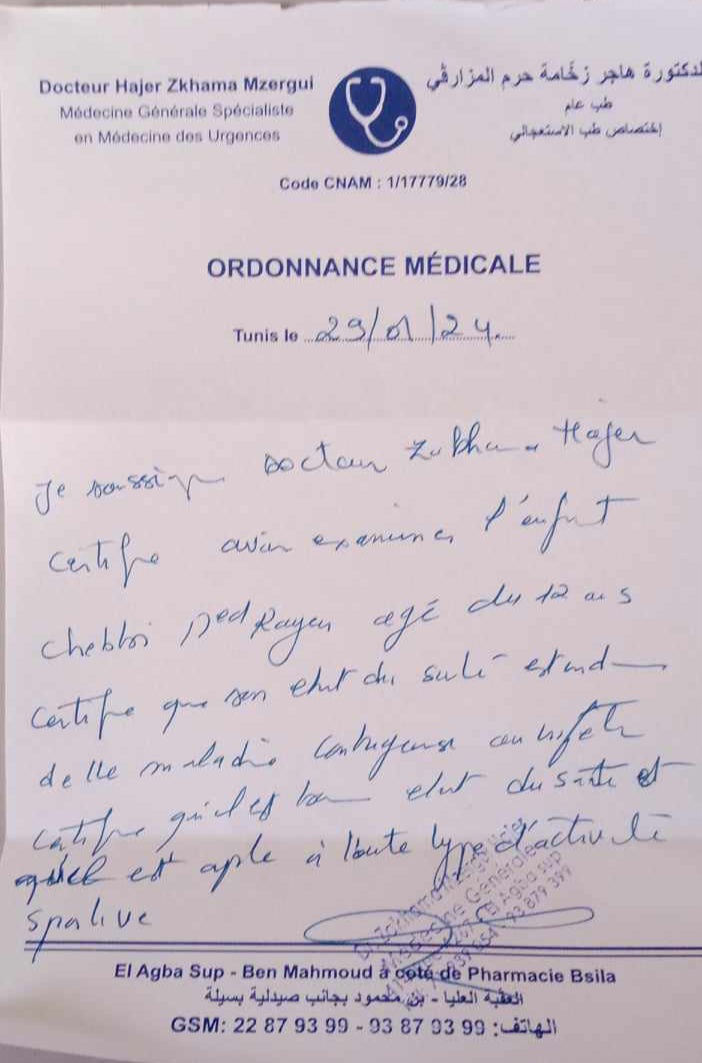 Docteur Hajer Zkhama Mzergui
Médecine Générale Spécialiste
en Médecine des Urgences
الدكتورة هاجر زخّامة حرم المزارڤي
طب عام
إختصاص طب الاستعجالي
Code CNAM : 1/17779/28
ORDONNANCE MÉDICALE
Tunis le 29/01/24.
Je soussigne Docteur Hajer
Certifie avoir examiner l'enfant
Chebbi Med Rayen agé du 12 ans
Certifie que son etat du sante est
de maladie contagieuse
Certifie qu'il est bon etat du sante et
qu'il est apte à toute type d'activité
sportive
El Agba Sup - Ben Mahmoud à coté de Pharmacie Bsila
العقبة العليا - بن محمود بجانب صيدلية بسيلة
GSM: 22 87 93 99 - 93 87 93 99 :الهاتف